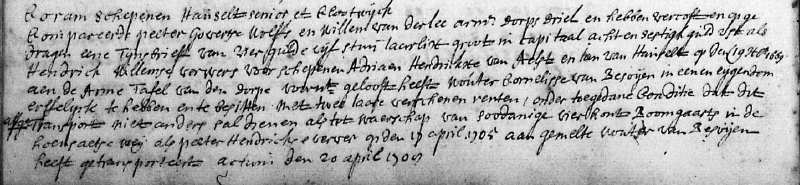 Coram Schepenen Hansselt senior et Clootwijck
Compareerdt peeter Goverse Wolffs en Willem van der lee armm dorps driel en hebben vercoft en opge
dragen eene Tynsbrief van vier gulde vyff stuv Jaerlixe groot in Capitaal acht en sestigh guld
Hendrick Willemse verwers voor schepenen Adriaen Hendrickse van Aelst en Jan van Hanselt op den 19
aan de Arme Tafel van den dorpe gelooft heeft Wouter Cornelisse van Besoijen in eenen eijgendom
erffelijck te hebben en te besitten met twee laaste verschenen renten, onder toegedane Conditie dat dit
Transport niet anders sal dienen als tot waerschap van soodanige vier hont Boomgaarts in de
weij als peeter Hendrickse verver op den 19 april 1705 aan gemelte wouter van Besoijen
heeft getransporteert actum den 20 april 1709